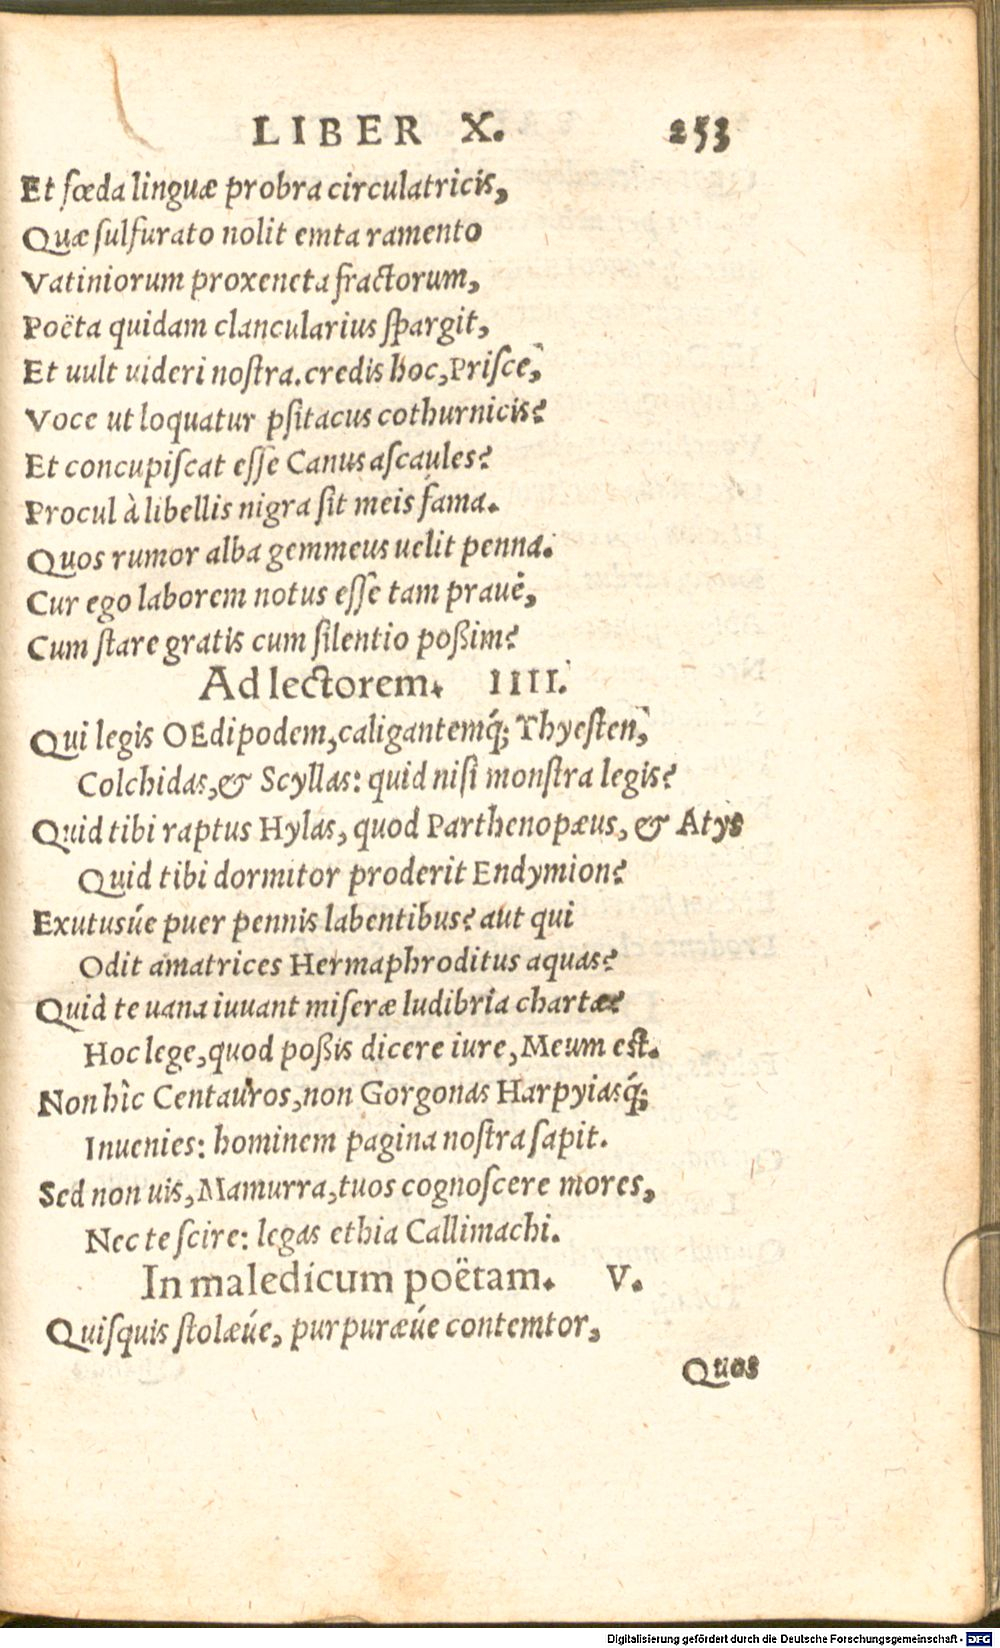 LIBER X. 253
Et fœda linguæ probra circulatricis,
Quæ sulfurato nolit emta ramento
Vatiniorum proxeneta fractorum,
Poëta quidam clancularius spargit,
Et uult uideri nostra. credis hoc, Prisce,
Voce ut loquatur psitacus cothurnicis?
Et concupiscat esse Canus ascaules?
Procul à libellis nigra sit meis fama.
Quos rumor alba gemmeus uelit penna.
Cur ego laborem notus esse tam prauè,
Cum stare gratis cum silentio poßim?
Ad lectorem. IIII.
Qui legis OEdipodem, caligantemq́; Thyesten,
Colchidas, & Scyllas: quid nisi monstra legis?
Quid tibi raptus Hylas, quod Parthenopæus, & Atys
Quid tibi dormitor proderit Endymion?
Exutusúe puer pennis labentibus? aut qui
Odit amatrices Hermaphroditus aquas?
Quid te uana iuuant miseræ ludibria chartæ?
Hoc lege, quod poßis dicere iure, Meum est.
Non hîc Centauros, non Gorgonas Harpyiasq́;
Inuenies: hominem pagina nostra sapit.
Sed non uis, Mamurra, tuos cognoscere mores,
Nec te scire: legas ethia Callimachi.
In maledicum poëtam. V.
Quisquis stolæúe, purpuræúe contemtor,
Quos
Digitalisierung gefördert durch die Deutsche Forschungsgemeinschaft - DFG